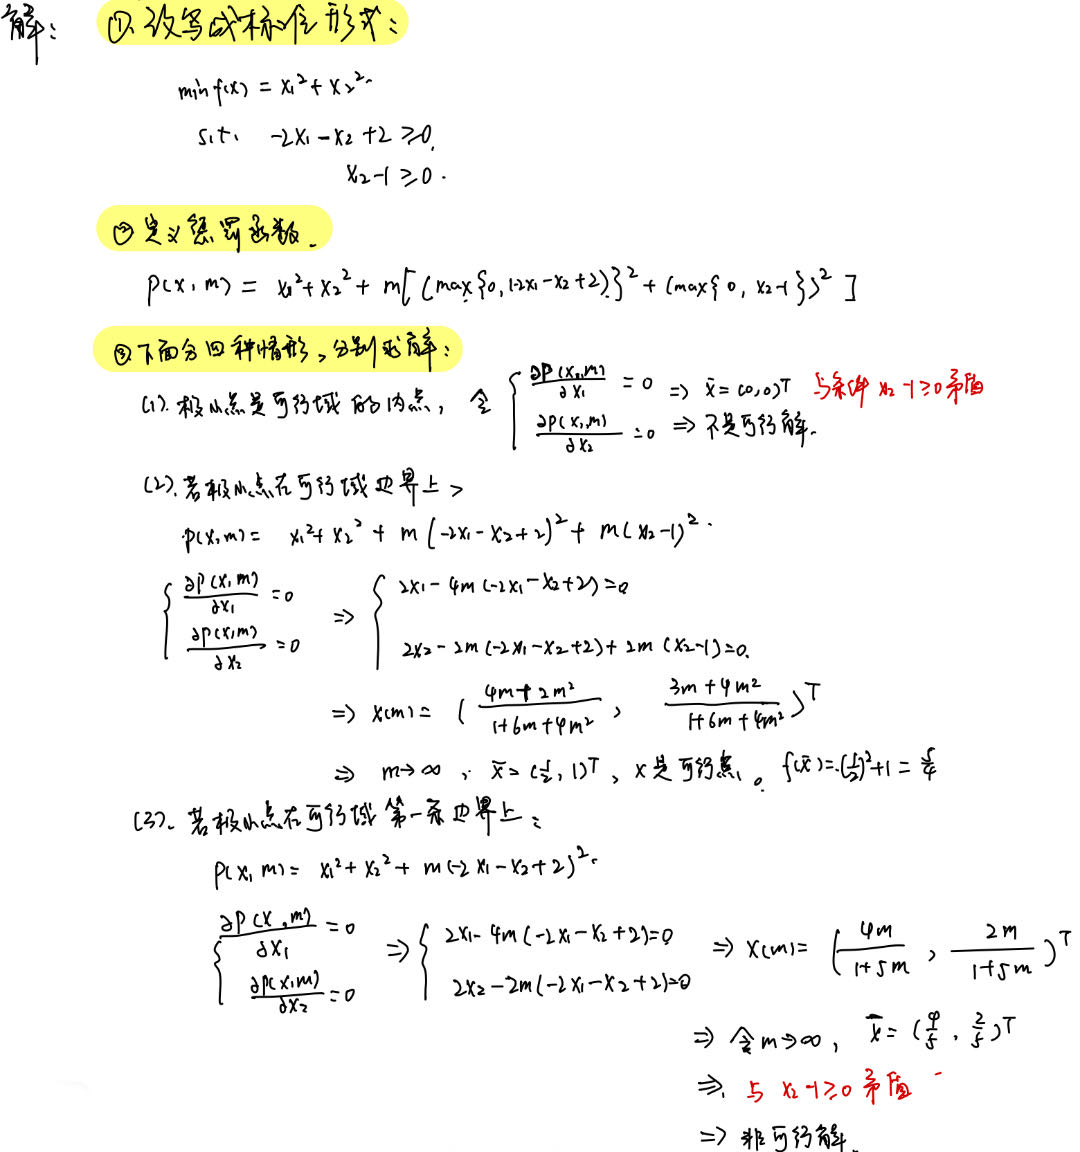 解：
①.改写成标准形式：
min f(x) = x₁² + x₂².
s.t. -2x₁ - x₂ + 2 ≥ 0.
x₂ - 1 ≥ 0.
② 定义惩罚函数.
P(x, m) = x₁² + x₂² + m[(max{0, (-2x₁ - x₂ + 2)}² + (max{0, x₂-1})² ]
③ 下面分四种情形，分别求解：
(1). 极小点是可行域的内点， 令 { ∂P(x,m)/∂x₁ = 0 ⇒ x̄ = (0,0)ᵀ 与条件 x₂ -1 ≥ 0 矛盾
∂P(x,m)/∂x₂ = 0 ⇒ 不是可行解.
(2). 若极小点在可行域边界上，
P(x,m) = x₁² + x₂² + m(-2x₁ - x₂ + 2)² + m(x₂-1)².
{ ∂P(x,m)/∂x₁ = 0 ⇒ { 2x₁ - 4m(-2x₁ - x₂ + 2) = 0
∂P(x,m)/∂x₂ = 0 2x₂ - 2m(-2x₁ - x₂ + 2) + 2m(x₂-1) = 0.
⇒ x(m) = ( (4m + 2m²)/(1+6m+4m²) , (3m + 4m²)/(1+6m+4m²) )ᵀ
⇒ m→∞ , x̄ = (1/2, 1)ᵀ , x是可行点. f(x̄) = (1/2)² + 1 = 5/4
(3). 若极小点在可行域第一条边界上：
P(x, m) = x₁² + x₂² + m(-2x₁ - x₂ + 2)².
{ ∂P(x,m)/∂x₁ = 0 ⇒ { 2x₁ - 4m(-2x₁ - x₂ + 2) = 0 ⇒ x(m) = ( 4m/(1+5m) , 2m/(1+5m) )ᵀ
∂P(x,m)/∂x₂ = 0 2x₂ - 2m(-2x₁ - x₂ + 2) = 0
⇒ 令 m→∞, x̄ = (4/5, 2/5)ᵀ
⇒ 与 x₂ -1 ≥ 0 矛盾
⇒ 非可行解.